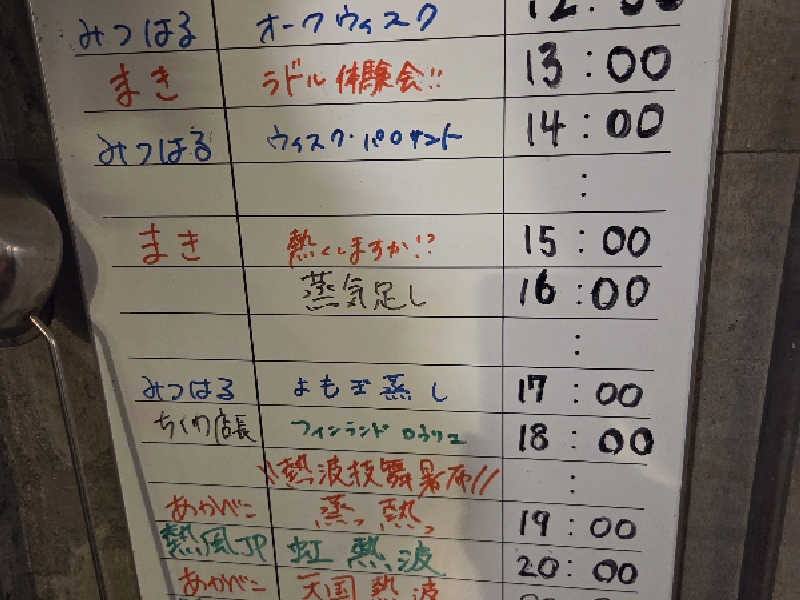 みつはる オークウィスク 12:00
まき ラドル体験会!! 13:00
みつはる ウィスク・パロサント 14:00
:
まき 熱くしますか!? 15:00
蒸気足し 16:00
:
みつはる よもぎ蒸し 17:00
ちくわ店長 フィンランドロウリュ 18:00
\\熱波技舞 // :
あかべこ 蒸っ熱っ 19:00
熱風JP 虹熱波 20:00
あかべこ 天国熱波